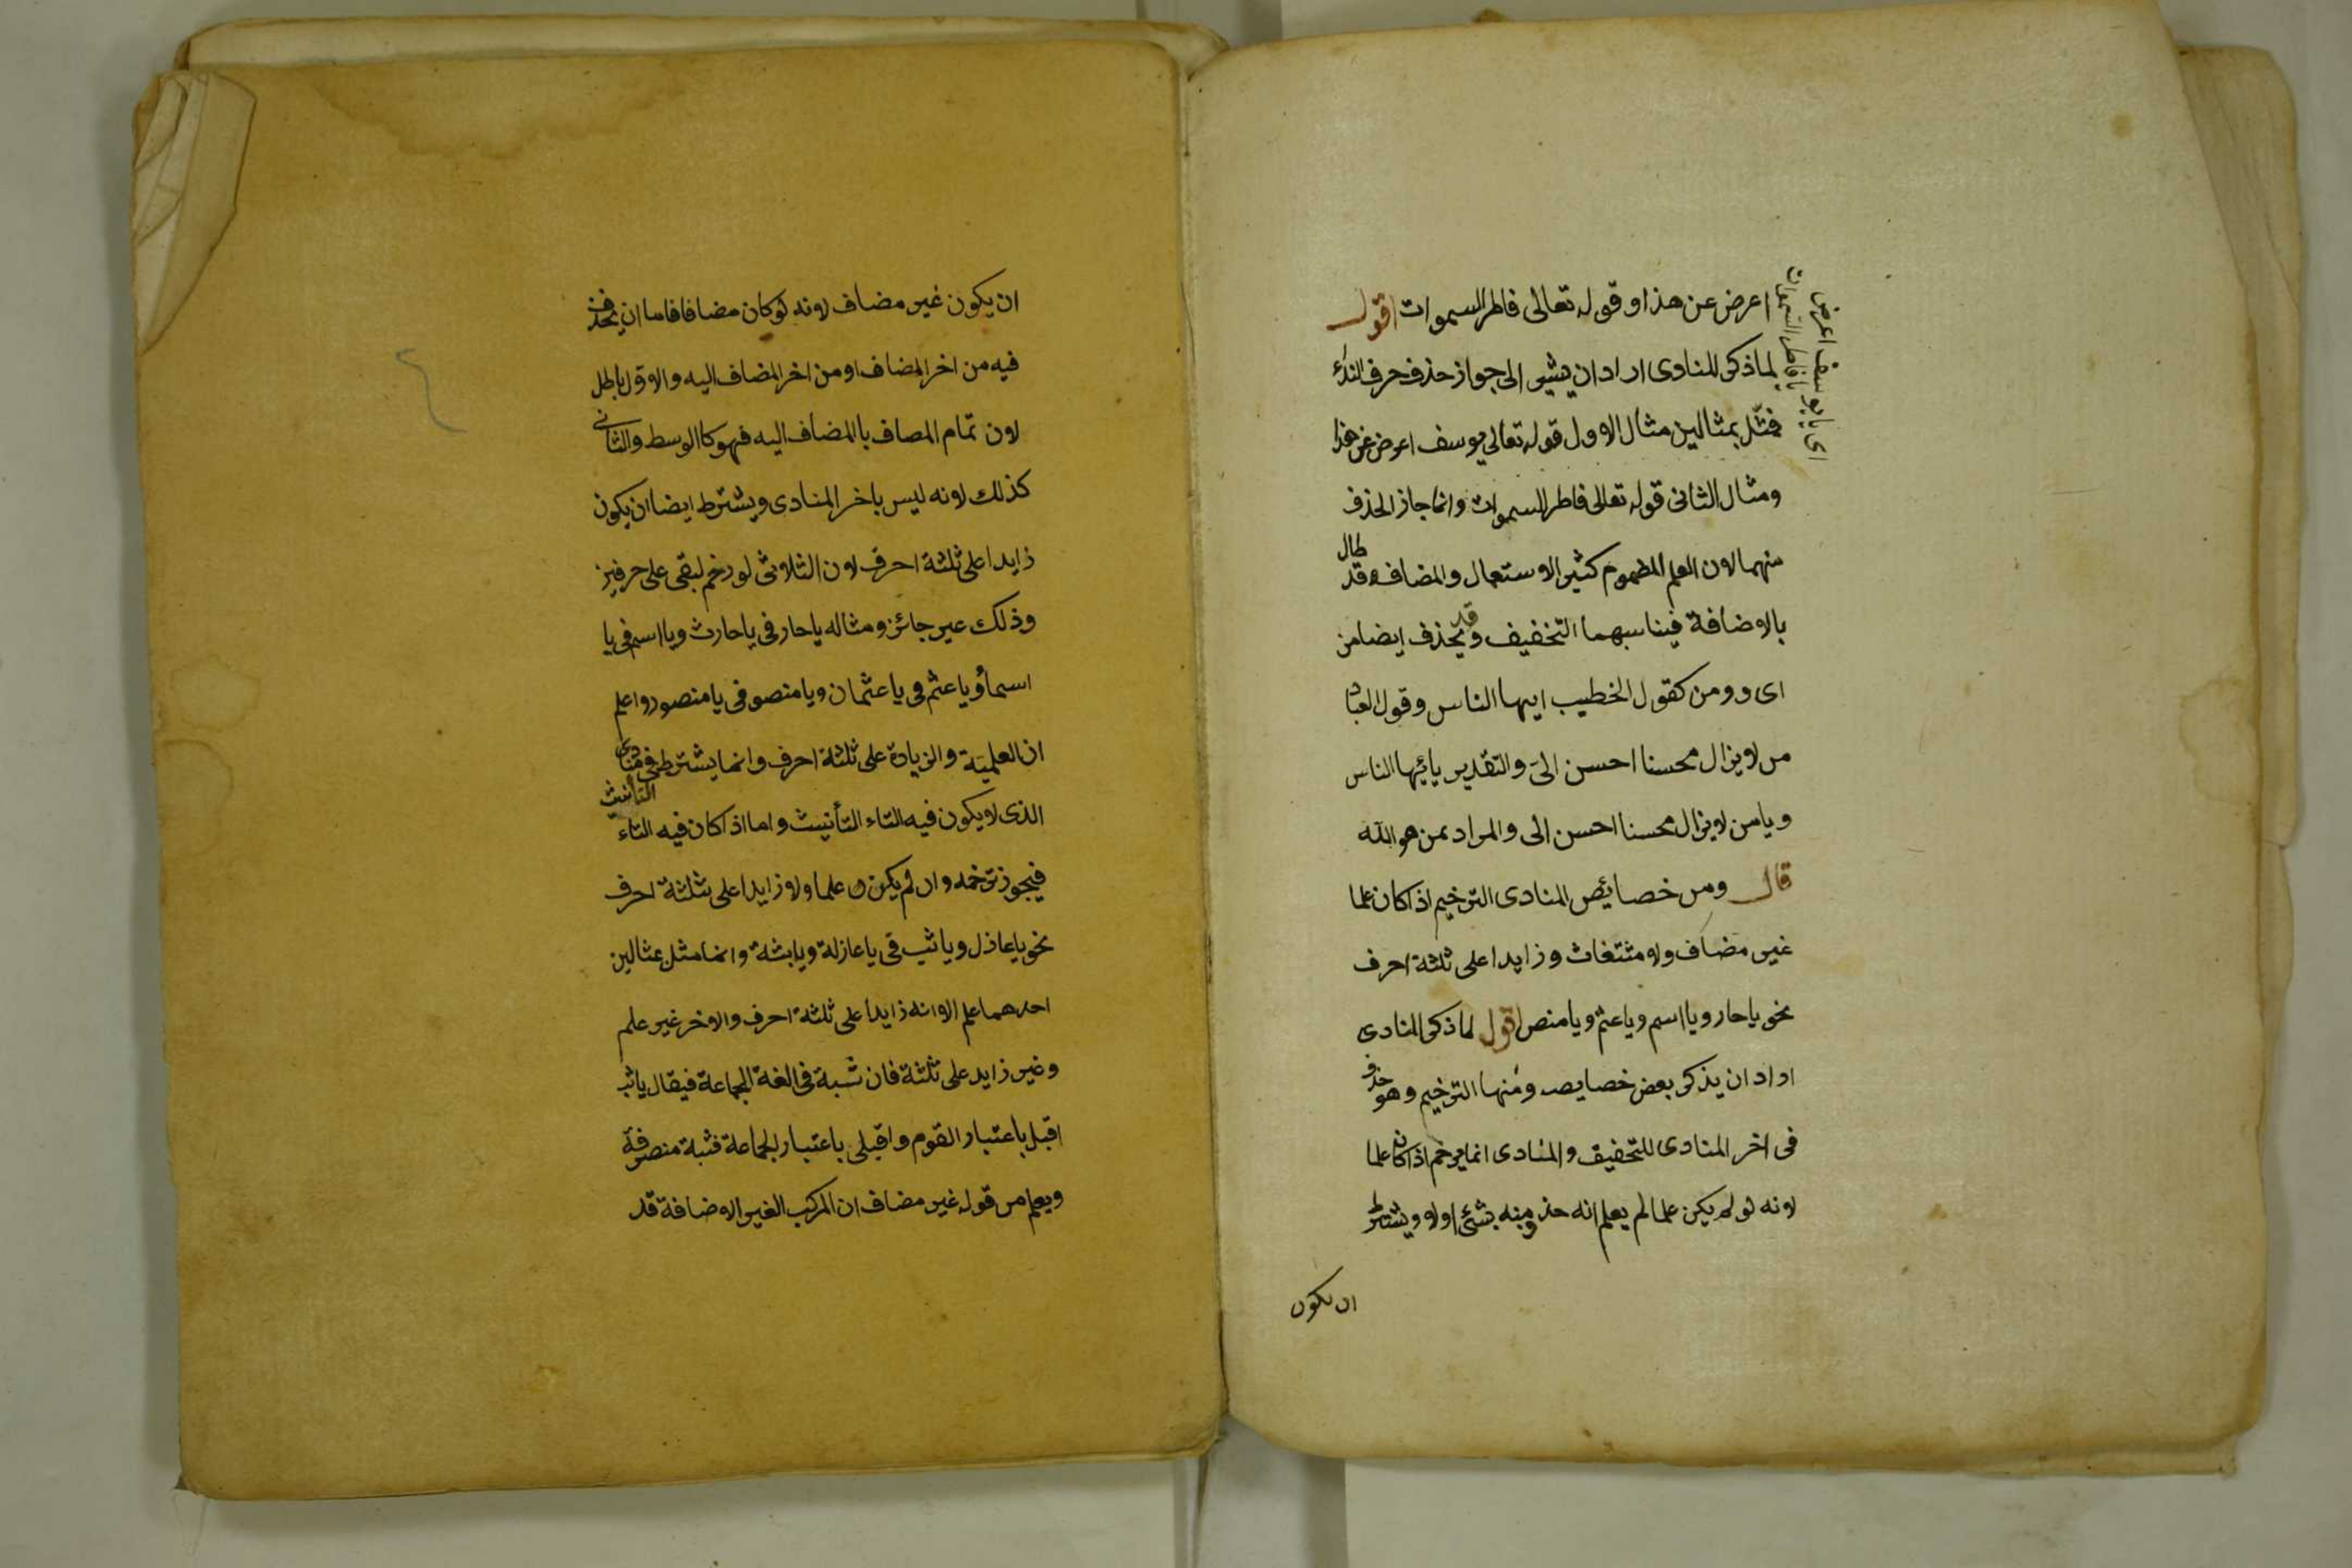 اعرض عن هذا وقوله تعالى فاطر السموات اقول
لما ذكر المنادى اراد ان يشير الى جواز حذف حرف النداء
فمثّل بمثالين مثال الاول قوله تعالى يوسف اعرض عن هذا
ومثال الثانى قوله تعالى فاطر السموات وانما جاز الحذف
منهما لان العلم المضموم كثير الاستعمال والمضاف قد طال
بالاضافة فيناسبهما التخفيف وقد يحذف ايضا من
اى و ومن كقول الخطيب ايها الناس وقول العباد
من لا يزال محسنا احسن الىّ والتقدير يا ئيها الناس
ويا من لا يزال محسنا احسن الى والمراد بمن هو الله
قال ومن خصائص المنادى الترخيم اذا كان علما
غير مضاف ولا مثتغاث وزايدا على ثلثة احرف
نحو يا حار ويا اسم ويا عثم ويا منص اقول لما ذكر المنادى
اراد ان يذكر بعض خصايصه ومنها الترخيم وهو حذف
فى اخر المنادى للتخفيف والمنادى انما يرخم اذا كان علما
لانه لو لم يكن علما لم يعلم انه حذف منه بشئ اولا ويشترط
ان يكون
اى يا يوسف اعرض
يا فاطر السموات
ان يكون غير مضاف لانه لو كان مضافا فاما ان يحذف
فيه من اخر المضاف او من اخر المضاف اليه والاول باطل
لان تمام المصاف بالمضاف اليه فهو كاالوسط والثانى
كذلك لانه ليس باخر المنادى ويشترط ايضا ان يكون
زايدا على ثلثة احرف لان الثلاثى لو رخم لبقى على حرفين
وذلك عير جائز ومثاله يا حار فى يا حارث ويا اسم فى يا
اسمأ ويا عثم فى يا عثمان ويا منصو فى يا منصور واعلم
ان العلمية والزيادة على ثلثة احرف وانما يشترط فى منادى
الذى لا يكون فيه التاء التأنيث واما اذا كان فيه التاء التأنيث
فيجوز ترخمه وان لم يكن علما ولا زايدا على ثلثة احرف
نحو يا عاذل ويا ثب فى يا عازلة ويا بثة وانما مثل بمثالين
احدهما علم الا انه زايدا على ثلثة احرف والاخر غير علم
وغير زايد على ثلثة فان شبة فى الغة الجماعة فيقال يا ثب
اقبل باعتبار القوم واقبلى باعتبار الجماعة فثبة منصرفة
ويعلم من قوله غير مضاف ان المركب الغير الاضافة قد